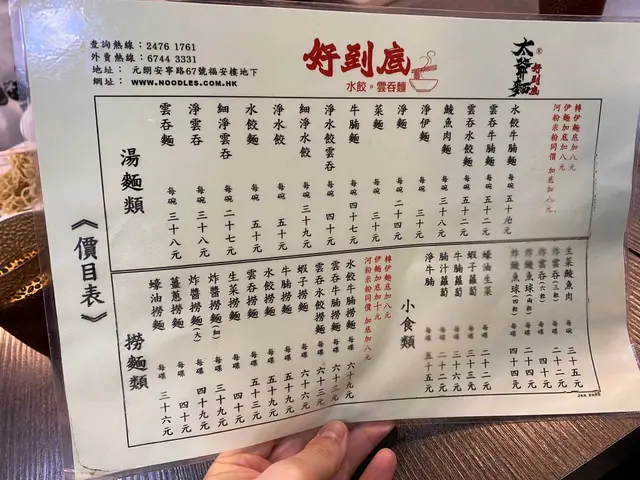 查詢熱線：2476 1761
外賣熱線：6744 3331
地址：元朗安寧路67號福安樓地下
網址：WWW.NOODLES.COM.HK
好到底
水餃。雲吞麵
太爺麵
好到底
《價目表》
湯麵類
雲吞麵 每碗 三十八元
淨雲吞 每碗 三十八元
細淨雲吞 每碗 二十七元
水餃麵 每碗 五十元
淨水餃 每碗 五十元
細淨水餃 每碗 三十九元
淨水餃雲吞 每碗 四十元
牛腩麵 每碗 五十元
菜麵 每碗 三十元
淨麵 每碗 二十四元
淨伊麵 每碗 三十元
鯪魚肉麵 每碗 三十八元
雲吞水餃麵 每碗 五十二元
雲吞牛腩麵 每碗 五十二元
水餃牛腩麵 每碗
轉伊麵加八元
伊麵加底加八元
河粉米粉同價 加底加八元
撈麵類
蠔油撈麵 每碟 三十六元
薑蔥撈麵 每碟 四十元
炸醬撈麵(大) 每碟 四十九元
炸醬撈麵(細) 每碟
生菜撈麵 每碟 四十元
雲吞撈麵 每碟 五十三元
水餃撈麵 每碟 五十九元
牛腩撈麵 每碟 五十九元
蝦子撈麵 每碟 六十六元
雲吞水餃撈麵 每碟 六十三元
雲吞牛腩撈麵 每碟 六十三元
水餃牛腩撈麵 每碟 六十九元
轉伊麵加八元
伊麵加底加十元
河粉米粉同價 加底加八元
小食類
淨牛腩 每碟 五十五元
腩汁蘿蔔 每碟 二十三元
牛腩蘿蔔 每碟 三十六元
蝦子蘿蔔 每碟 三十三元
蠔油生菜 每碟 二十二元
炸鯪魚球(四粒) 每碟 四十四元
炸鯪魚球(兩粒) 每碟 二十二元
炸雲吞(六粒) 每碟 四十元
炸雲吞(三粒) 每碟 二十二元
生菜鯪魚肉 每碟 三十五元